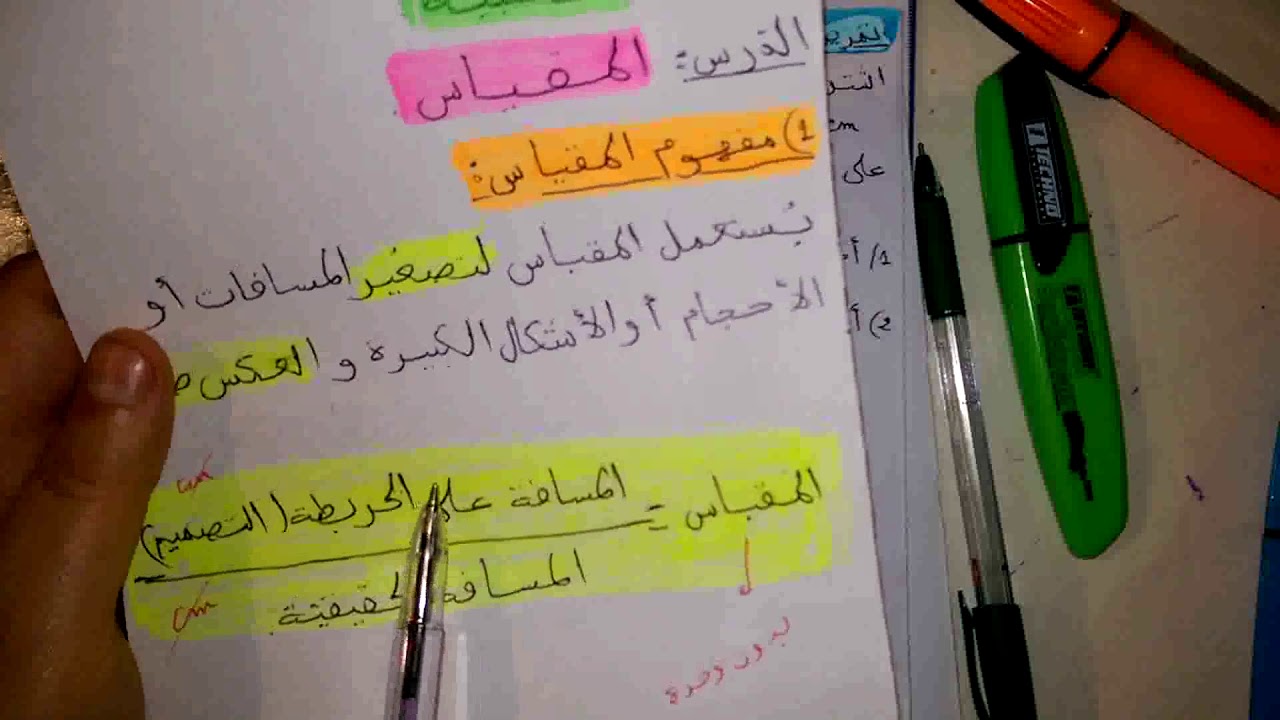 الدرس: المقياس
1) مفهوم المقياس:
يُستعمل المقياس لتصغير المسافات أو
الأحجام أو الأشكال الكبيرة و العكس
cm
المقياس = المسافة على الخريطة (التصميم)
المسافة الحقيقية
cm
بدون وحدة
cm
على
1/ أ
2) أ
TECHNO